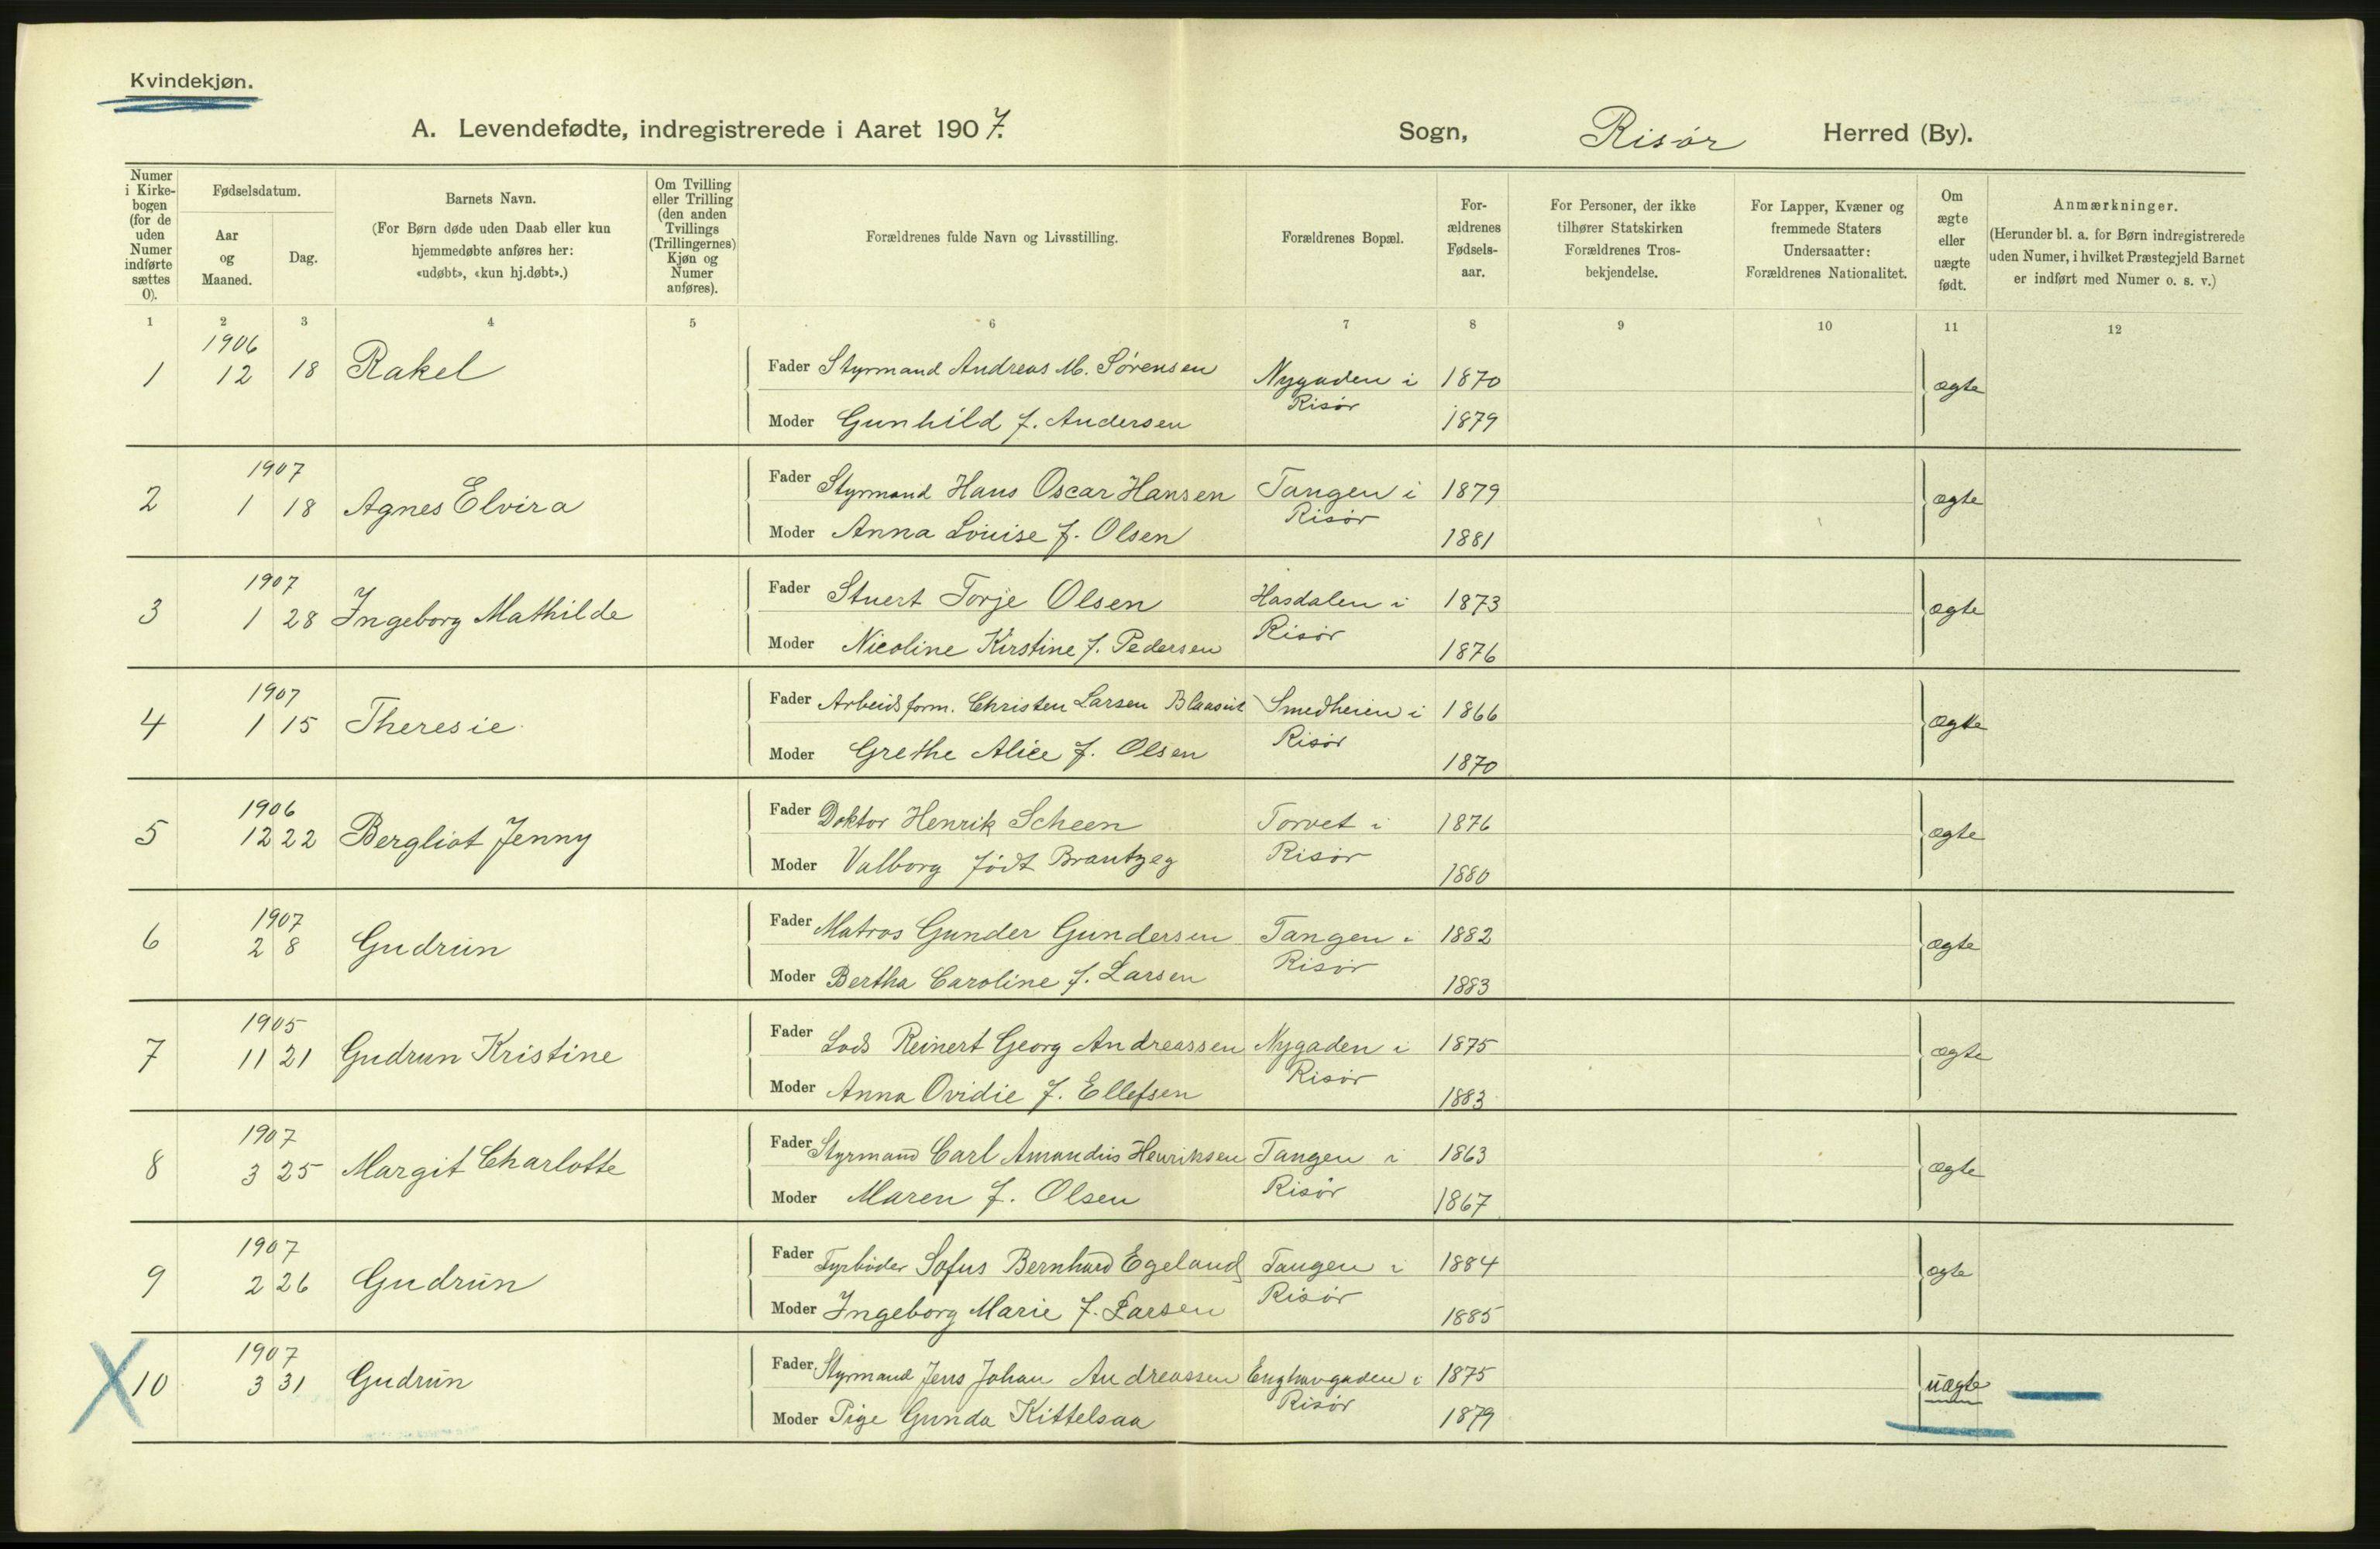 Kvindekjøn.
A. Levendefødte, indregistrerede i Aaret 1907. Sogn, Risør Herred (By).
Numer i Kirkebogen (for de uden Numer indførte sættes 0).
Fødselsdatum.
Aar og Maaned.
Dag.
Barnets Navn.
(For Børn døde uden Daab eller kun hjemmedøbte anføres her: «udøbt», «kun hj.døbt».)
Om Tvilling eller Trilling (den anden Tvillings (Trillingernes) Kjøn og Numer anføres).
Forældrenes fulde Navn og Livsstilling.
Forældrenes Bopæl.
Forældrenes Fødselsaar.
For Personer, der ikke tilhører Statskirken Forældrenes Trosbekjendelse.
For Lapper, Kvæner og fremmede Staters Undersaatter: Forældrenes Nationalitet.
Om ægte eller uægte født.
Anmærkninger.
(Herunder bl. a. for Børn indregistrerede uden Numer, i hvilket Præstegjeld Barnet er indført med Numer o. s. v.)
1 2 3 4 5 6 7 8 9 10 11 12
1906
1 12 18 Rakel Fader Styrmand Andreas M. Sørensen Nygaden i 1870 ægte
Risør
Moder Gunhild f. Andersen 1879
1907
2 1 18 Agnes Elvira Fader Styrmand Hans Oscar Hansen Tangen i 1879 ægte
Risør
Moder Anna Louise f. Olsen 1881
1907
3 1 28 Ingeborg Mathilde Fader Stuert Torje Olsen Hasdalen i 1873 ægte
Risør
Moder Nicoline Kirstine f. Pedersen 1876
1907
4 1 15 Theresie Fader Arbeidsform. Christen Larsen Smedheien i 1866 ægte
Risør
Moder Grethe Alice f. Olsen 1870
1906
5 12 22 Bergliot Jenny Fader Doktor Henrik Scheen Torvet i 1876 ægte
Risør
Moder Valborg født Brantzeg 1880
1907
6 2 8 Gudrun Fader Matros Gunder Gundersen Tangen i 1882 ægte
Risør
Moder Bertha Caroline f. Larsen 1883
1905
7 11 21 Gudrun Kristine Fader Lods Reinert Georg Andreassen Nygaden i 1875 ægte
Risør
Moder Anna Ovidie f. Ellefsen 1883
1907
8 3 25 Margit Charlotte Fader Styrmand Carl Amandus Henriksen Tangen i 1863 ægte
Risør
Moder Maren f. Olsen 1867
1907
9 2 26 Gudrun Fader Fyrbøder Sofus Bernhard Egeland Tangen i 1884 ægte
Risør
Moder Ingeborg Marie f. Larsen 1885
1907
X 10 3 31 Gudrun Fader Styrmand Jens Johan Andreassen Enghavgaden i 1875 uægte
Risør
Moder Pige Gunda Kittelsaa 1879